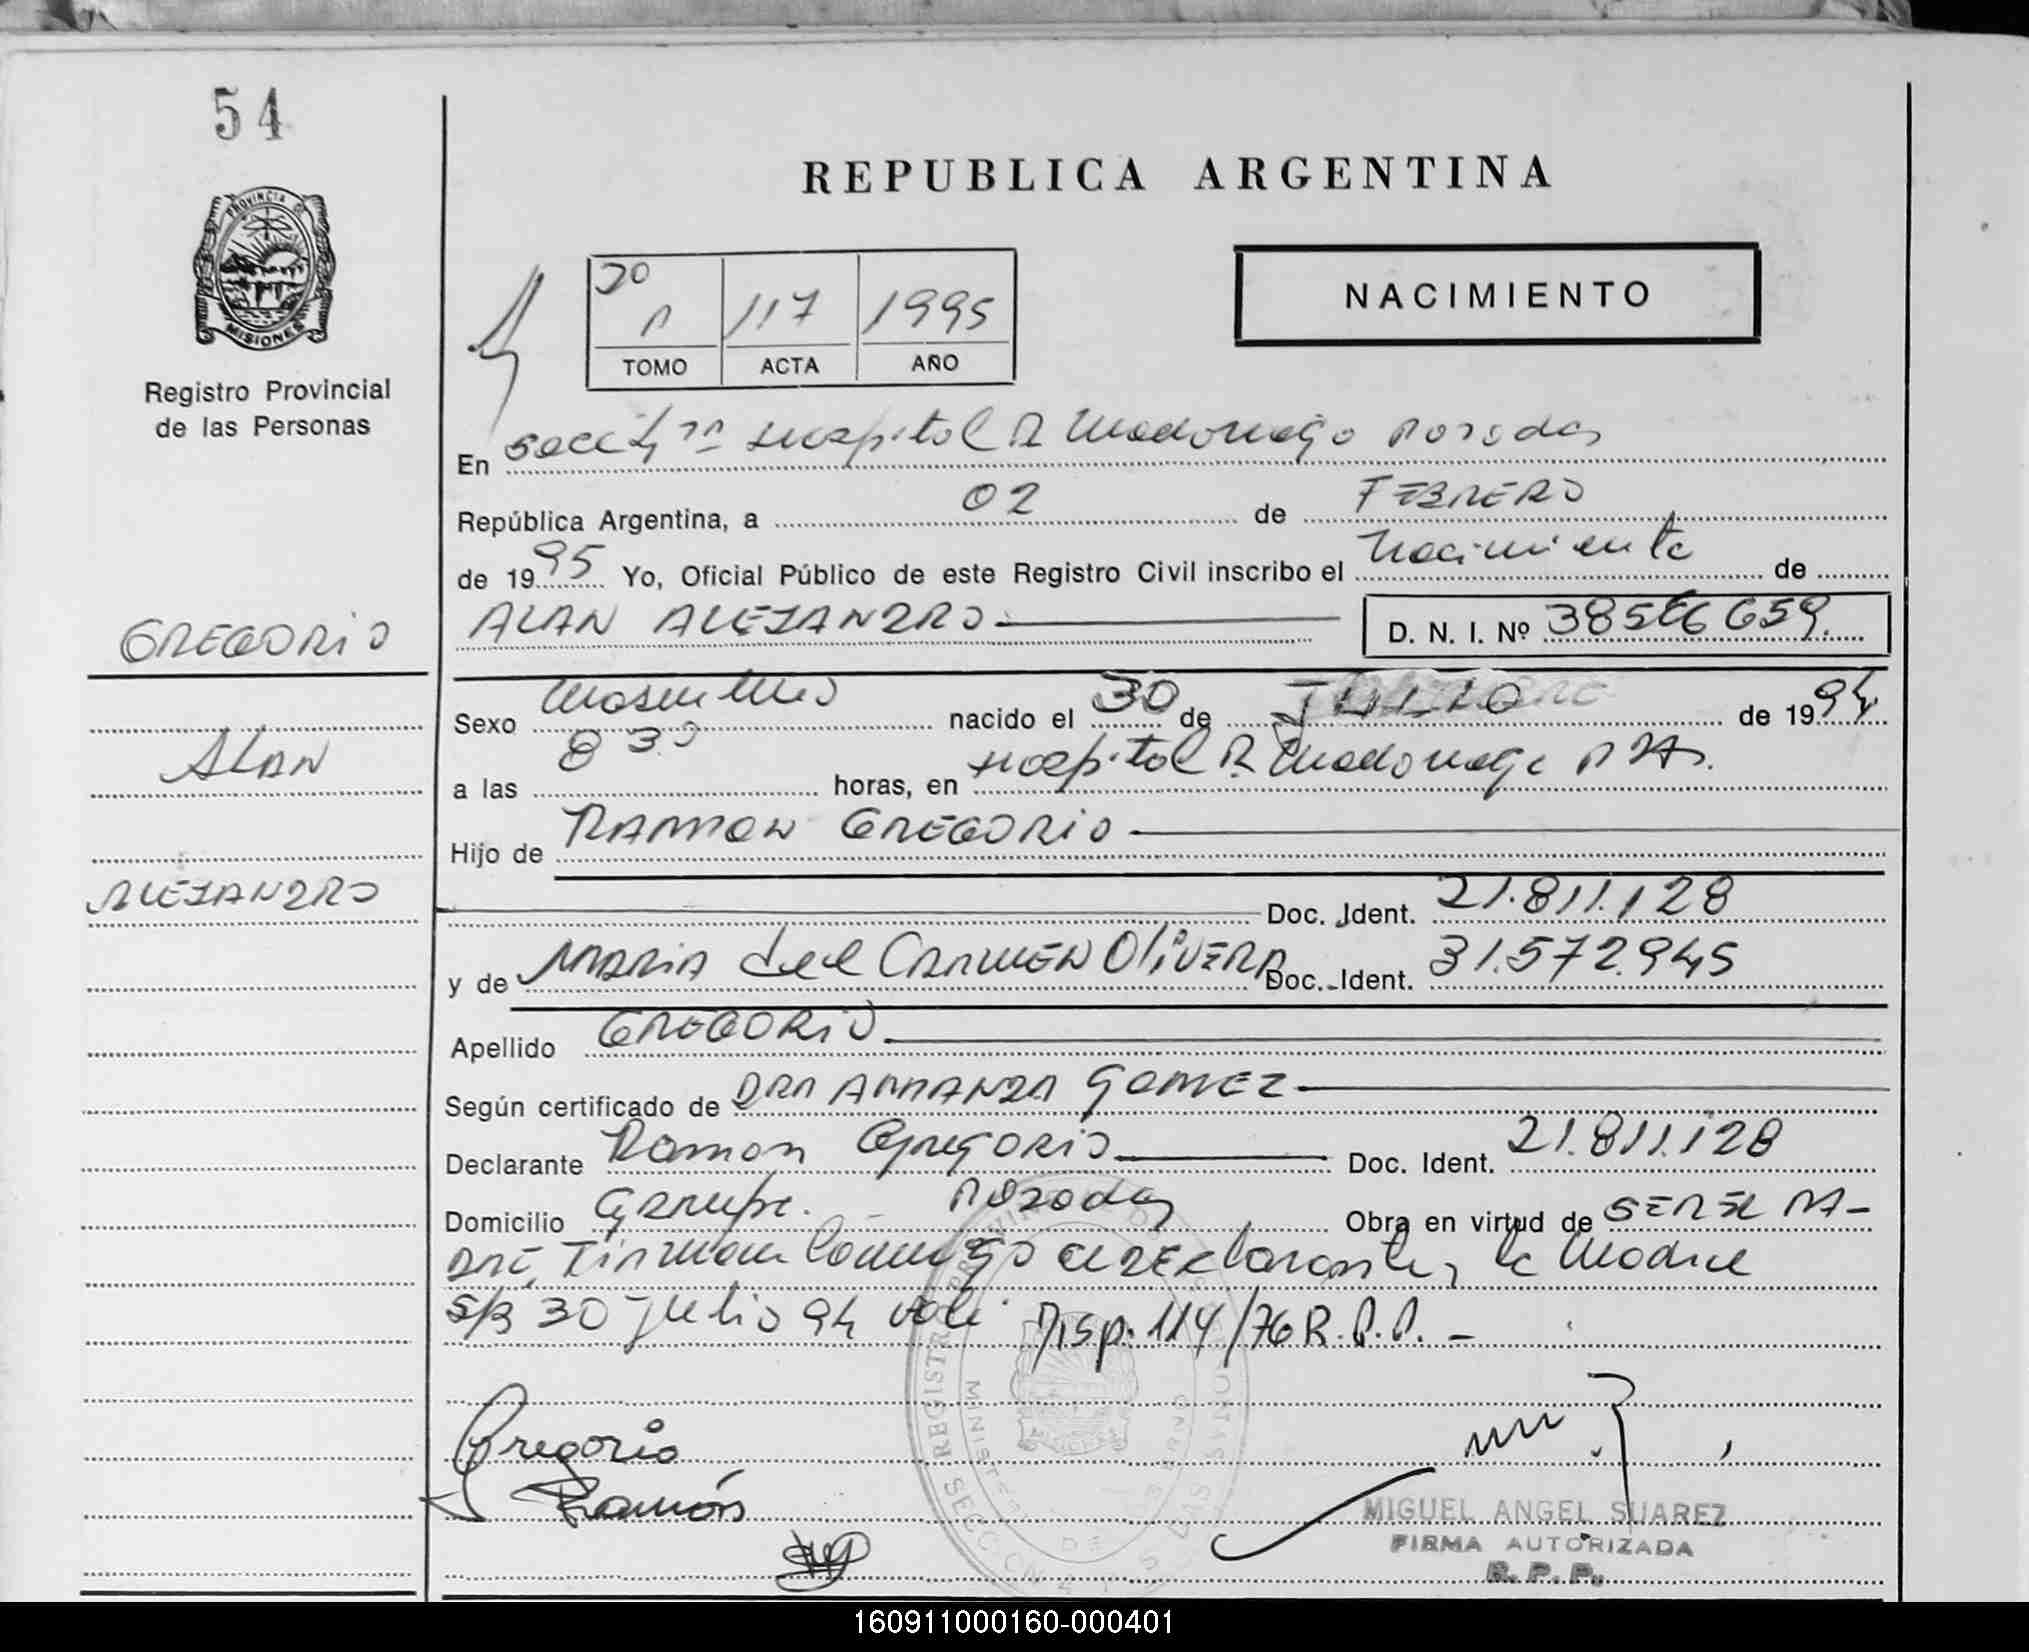 54
REPUBLICA ARGENTINA
PROVINCIA DE
MISIONES
Registro Provincial
de las Personas
117 1995
TOMO ACTA AÑO
NACIMIENTO
En Secc Hospital R Madariaga Posadas
República Argentina, a 02 de FEBRERO
de 1995 Yo, Oficial Público de este Registro Civil inscribo el Nacimiento de
GREGORIO
ALAN ALEJANDRO D. N. I. Nº
Sexo Masculino nacido el 30 de JULIO de 1994
ALAN
a las 8 30 horas, en Hospital R. Madariaga
Hijo de RAMON GREGORIO
ALEJANDRO
Doc. Ident. 21.811.128
y de MARIA del CARMEN OLIVERA Doc. Ident. 31.572.945
Apellido GREGORIO
Según certificado de DRA AMANDA GOMEZ
Declarante Ramon GREGORIO Doc. Ident. 21.811.128
Domicilio Garupa. - Posadas Obra en virtud de SER EL PA-
DRE, Firman Conmigo el DEclarante y la Madre
S/B 30 Julio 94 vale Disp. 114/76 R.P.P. -
Gregorio
Ramón
MIGUEL ANGEL SUAREZ
FIRMA AUTORIZADA
R. P. P.
160911000160-000401